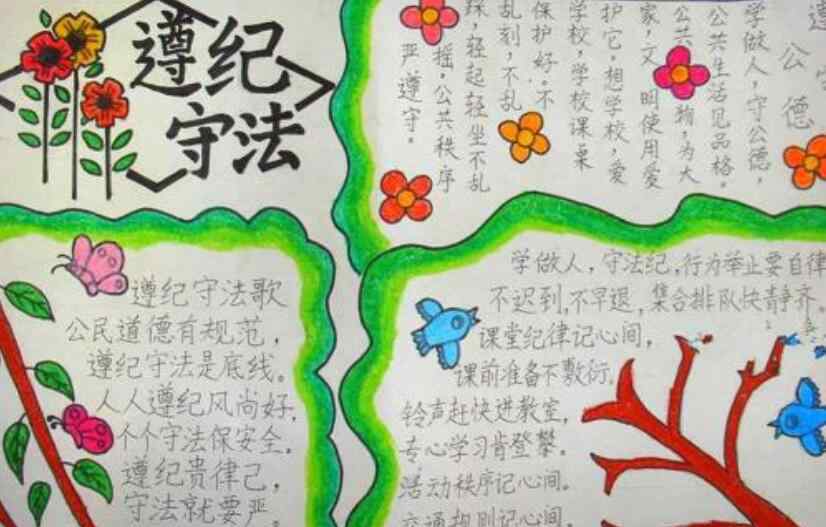 遵纪
守法
遵守
公德
学做人,守公德,
公共生活见品格。
公共物,为大
家,文明使用爱
护它。想学校,爱
学校,学校课桌
保护好。不
乱刻,不乱
踩,轻起轻坐不乱
摇,公共秩序
严遵守。
遵纪守法歌
公民道德有规范,
遵纪守法是底线。
人人遵纪风尚好,
个个守法保安全。
遵纪贵律己,
守法就要严。
学做人,守法纪,行为举止要自律
不迟到,不早退,集合排队快静齐。
课堂纪律记心间,
课前准备不敷衍。
铃声赶快进教室,
专心学习肯登攀。
活动秩序记心间。
交通规则记心间,